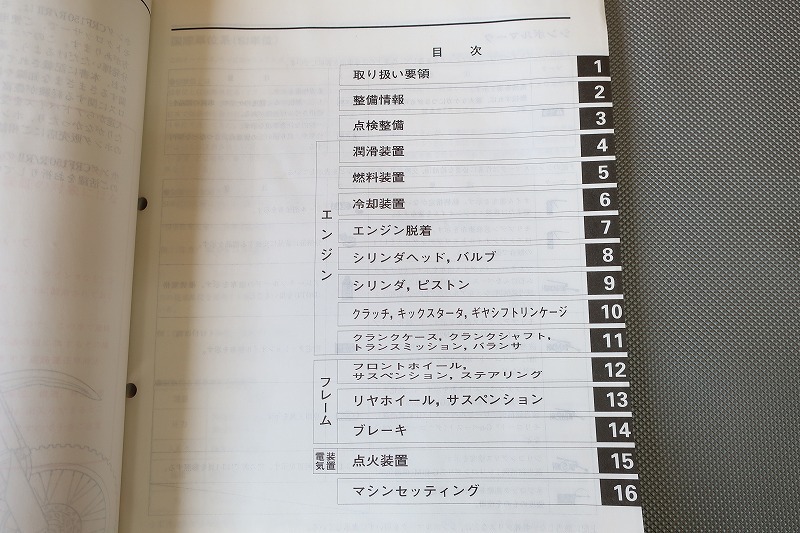 目 次
取り扱い要領 1
整備情報 2
点検整備 3
エンジン
潤滑装置 4
燃料装置 5
冷却装置 6
エンジン脱着 7
シリンダヘッド, バルブ 8
シリンダ, ピストン 9
クラッチ, キックスタータ, ギヤシフトリンケージ 10
クランクケース, クランクシャフト,
トランスミッション, バランサ 11
フレーム
フロントホイール,
サスペンション, ステアリング 12
リヤホイール, サスペンション 13
ブレーキ 14
電気装置
点火装置 15
マシンセッティング 16